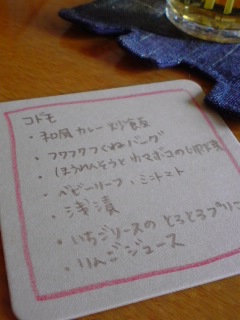 コドモ
・和風カレー炒飯
・フワフワつくねバーグ
(ほうれんそうとカマボコの
・ベビーリーフ、ミニトマト
・浅漬
・いちごソースのとろとろプリン
・りんごジュース